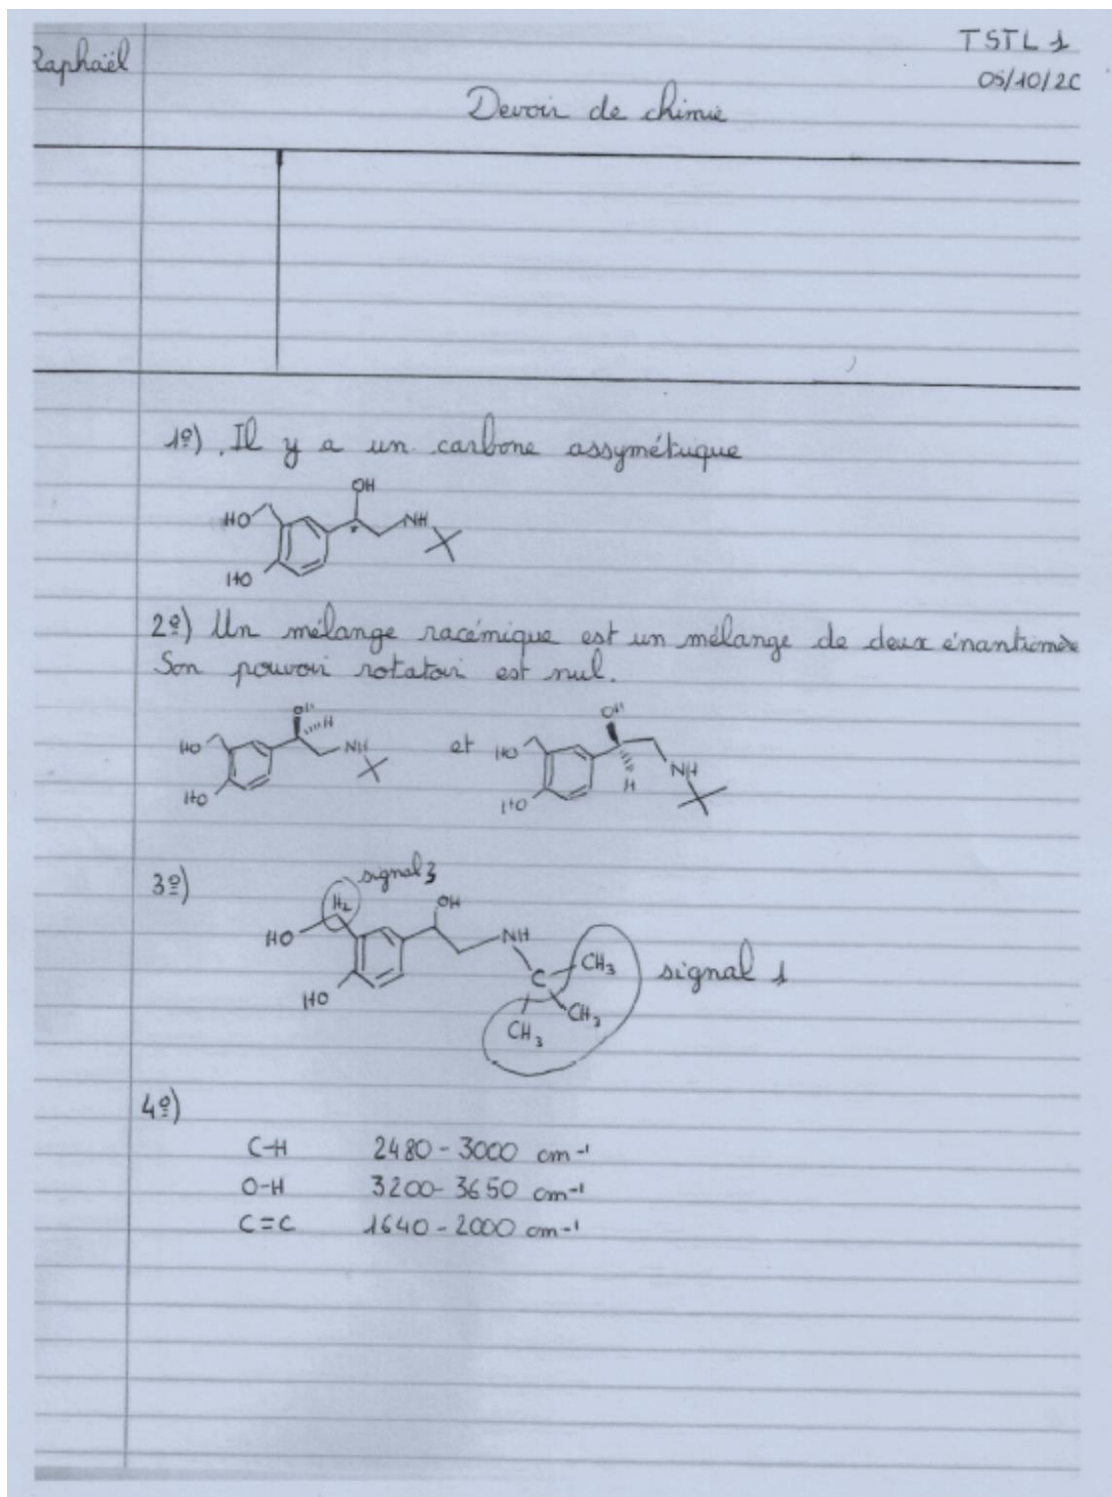 Raphaël
TSTL 1
05/10/20
Devoir de chimie
1º) . Il y a un carbone assymétrique
OH
HO
NH
HO
*
2º) Un mélange racémique est un mélange de deux énantiomère
Son pouvoir rotatoir est nul.
OH
H
HO
NH
HO
et
OH
HO
NH
H
HO
3º)
signal 3
H2
OH
HO
NH
HO
C
CH3
CH3
CH3
signal 1
4º)
C-H 2480 - 3000 cm-1
O-H 3200 - 3650 cm-1
C=C 1640 - 2000 cm-1